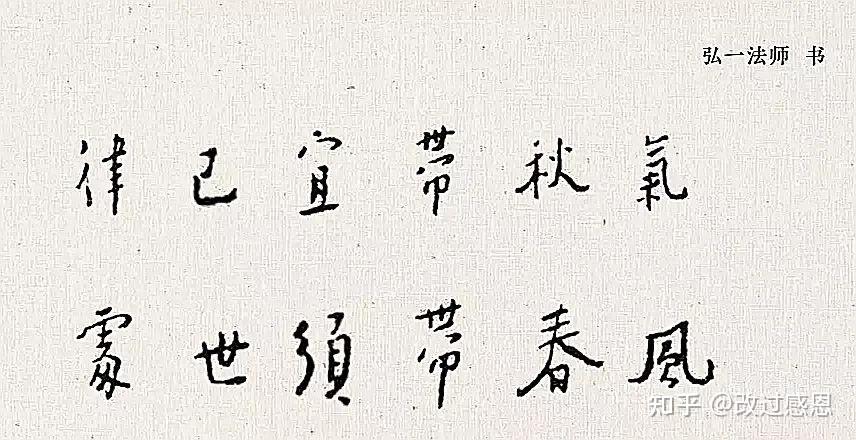 弘一法师 书
律己宜帶秋氣
處世須帶春風
知乎 @改过感恩